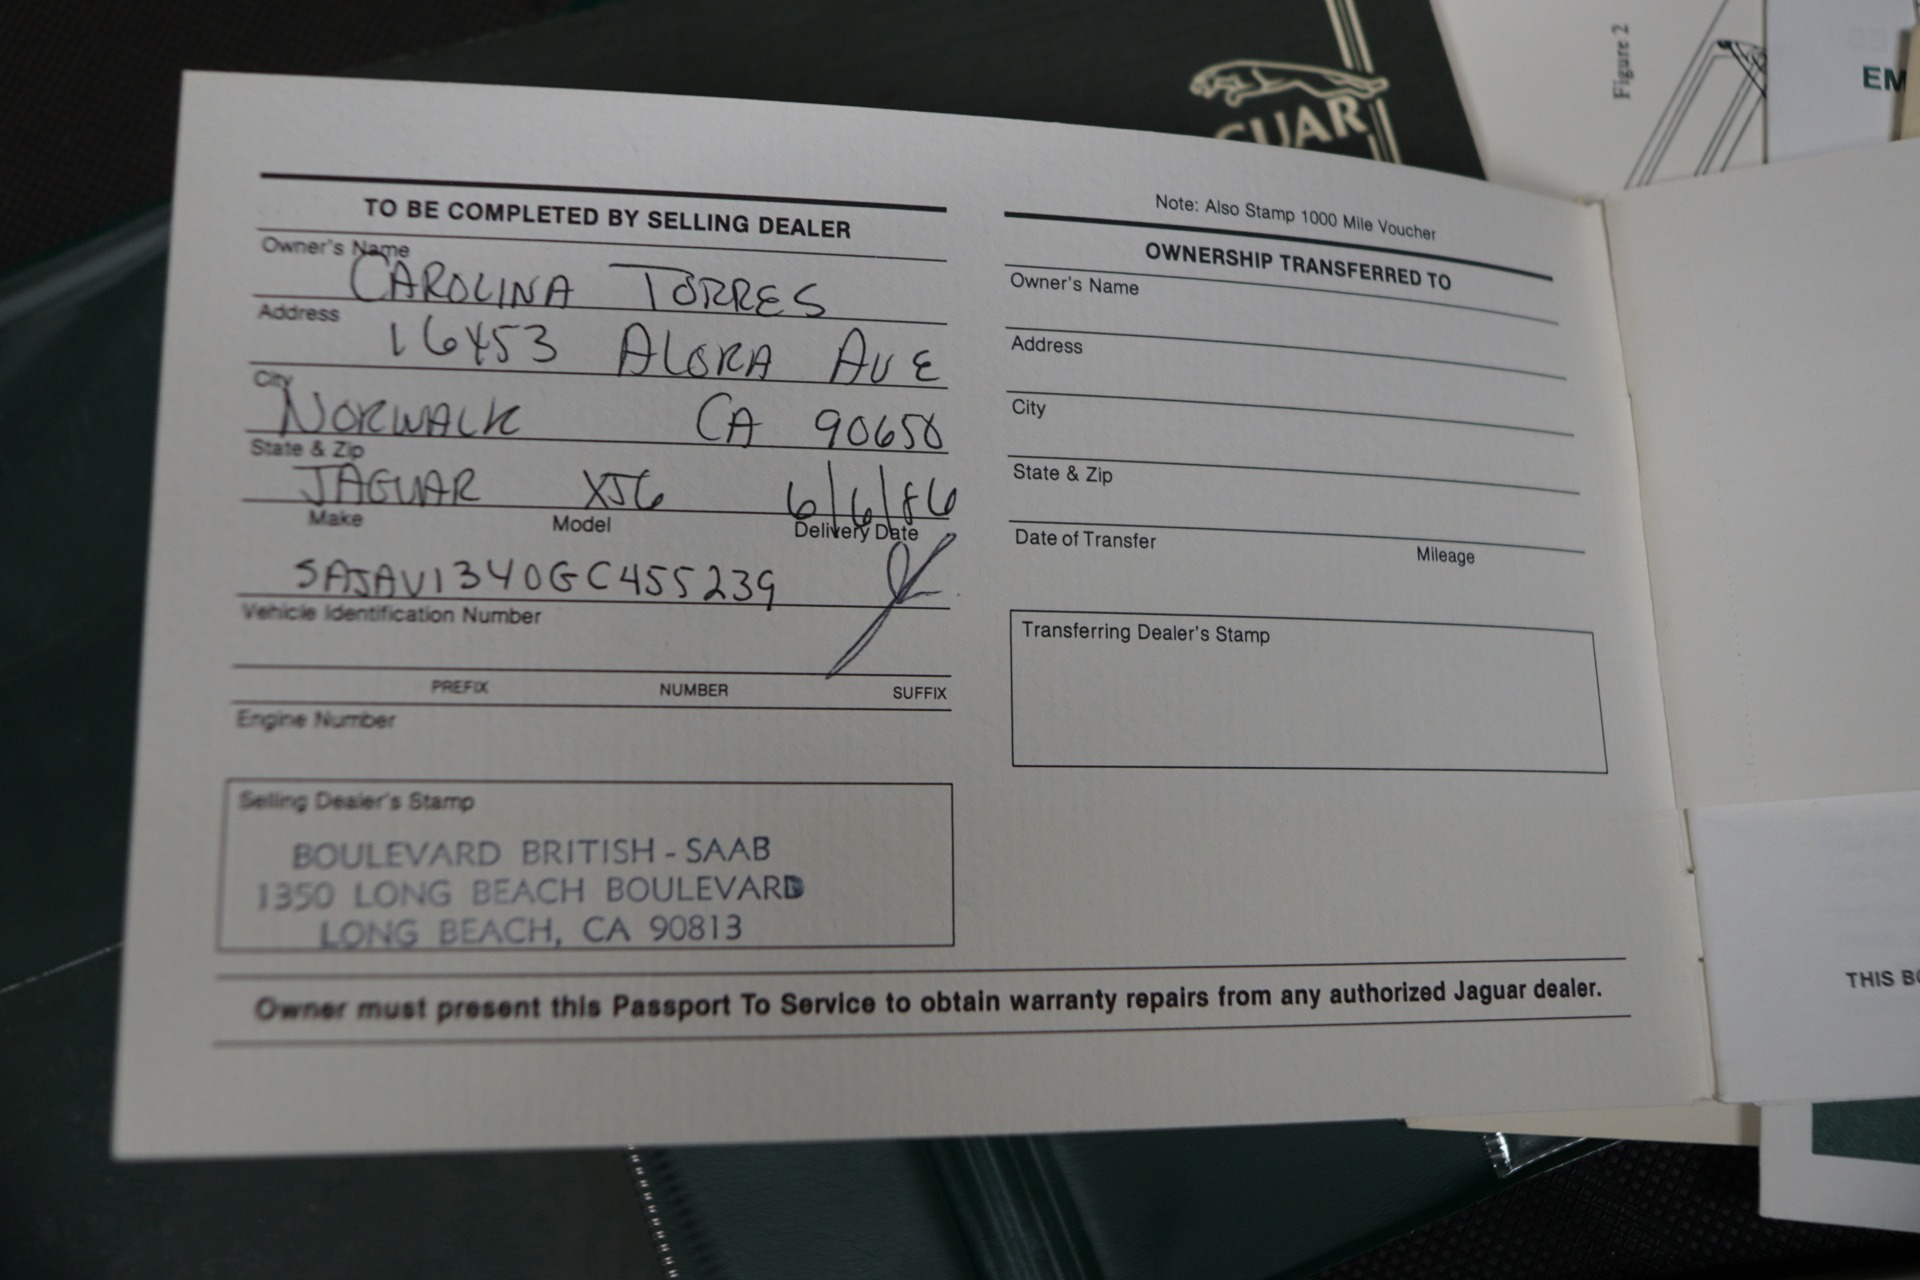 JAGUAR
Figure 2
EM
TO BE COMPLETED BY SELLING DEALER
Owner's Name
CAROLINA TORRES
Address
16453 ALORA AVE
City
NORWALK CA 90650
State & Zip
JAGUAR XJ6 6/6/86
Make Model Delivery Date
SAJAV1340GC455239
Vehicle Identification Number
PREFIX NUMBER SUFFIX
Engine Number
Selling Dealer's Stamp
BOULEVARD BRITISH - SAAB
1350 LONG BEACH BOULEVARD
LONG BEACH, CA 90813
Note: Also Stamp 1000 Mile Voucher
OWNERSHIP TRANSFERRED TO
Owner's Name
Address
City
State & Zip
Date of Transfer Mileage
Transferring Dealer's Stamp
Owner must present this Passport To Service to obtain warranty repairs from any authorized Jaguar dealer.
THIS BO